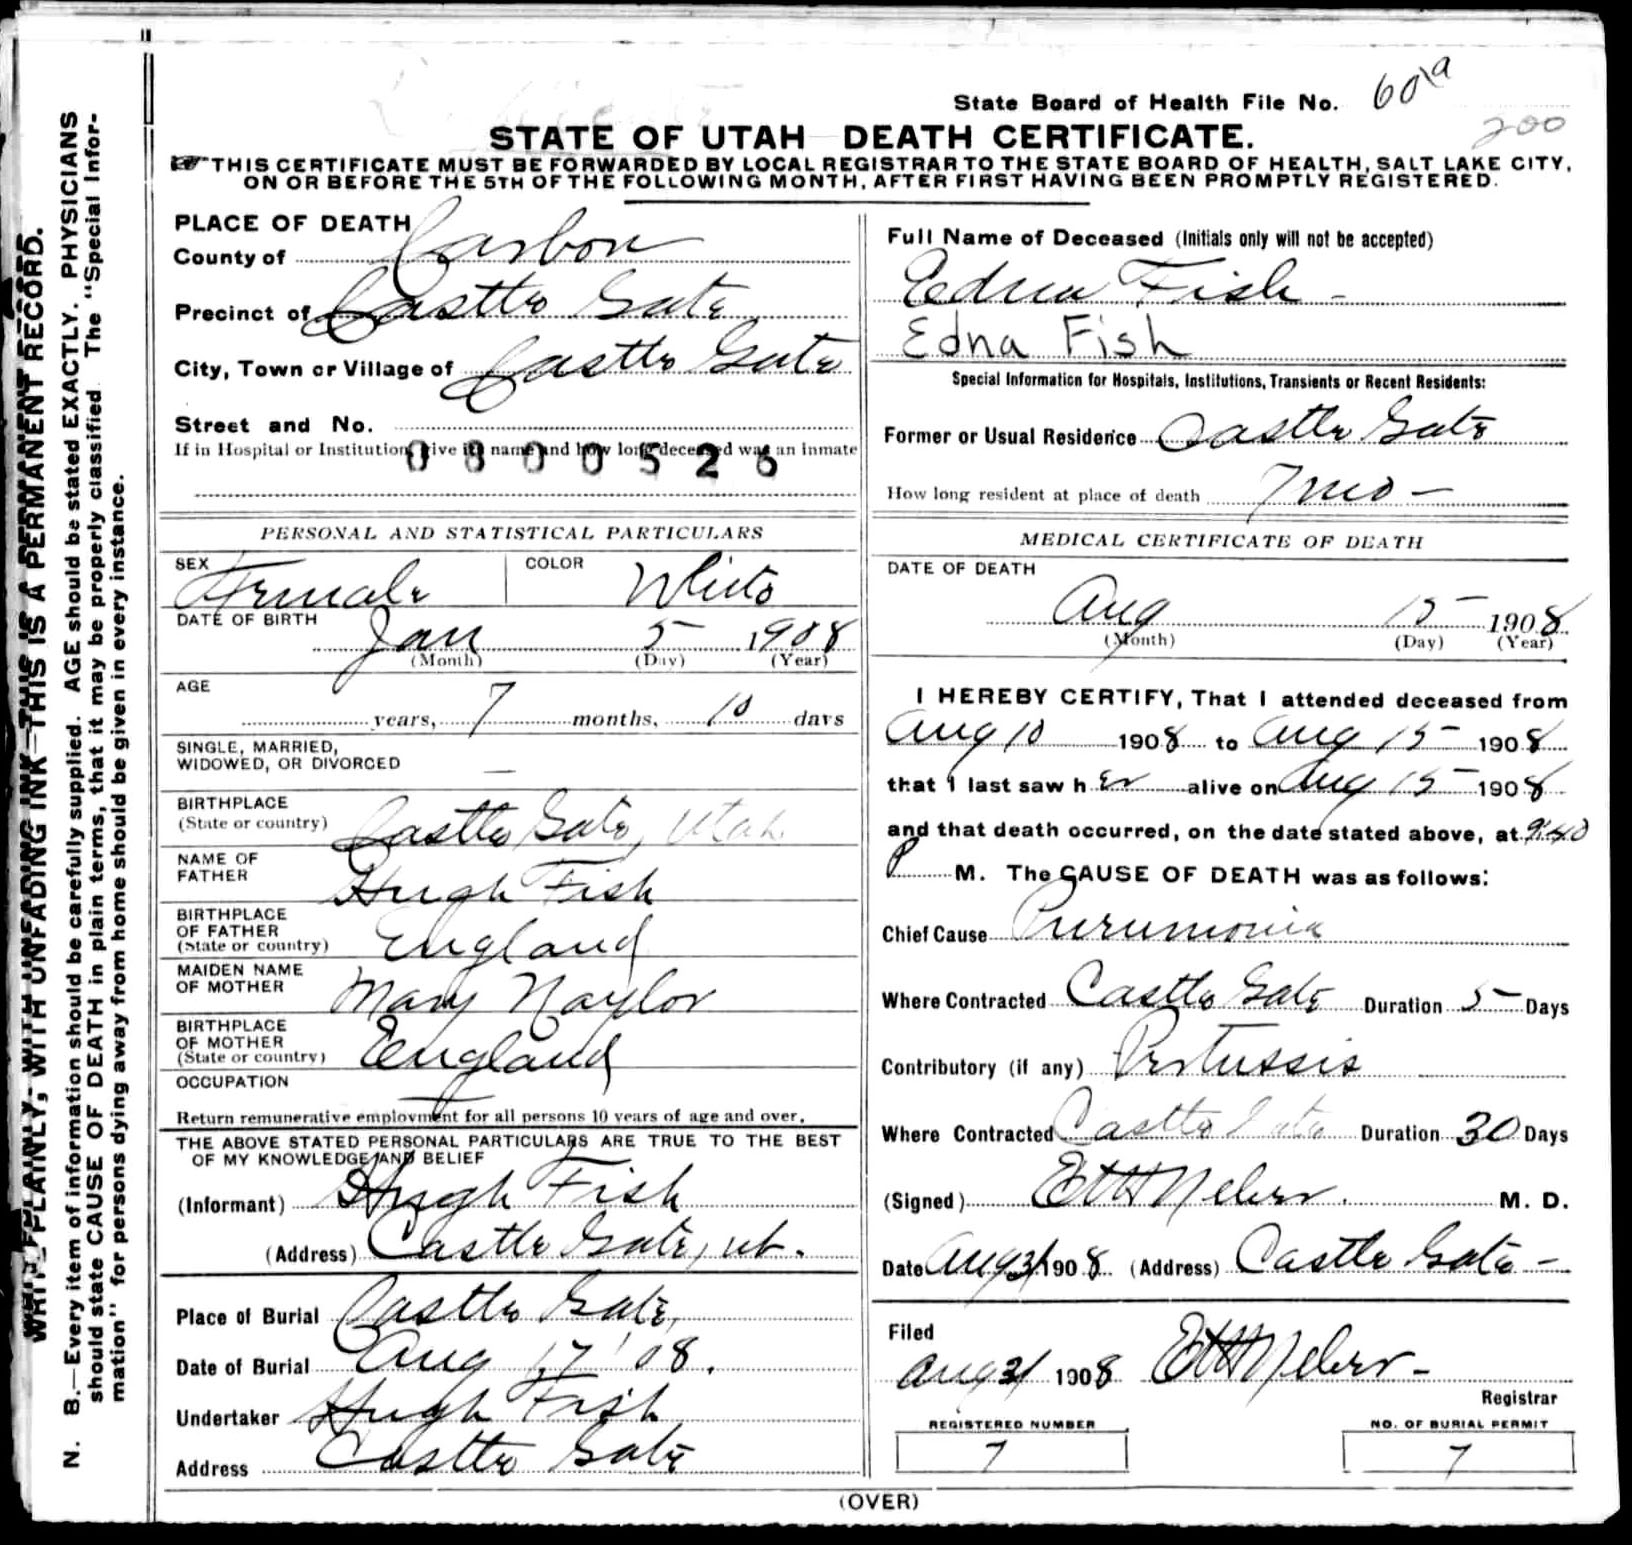 State Board of Health File No. 60 1a
200
STATE OF UTAH DEATH CERTIFICATE.
THIS CERTIFICATE MUST BE FORWARDED BY LOCAL REGISTRAR TO THE STATE BOARD OF HEALTH, SALT LAKE CITY,
ON OR BEFORE THE 5TH OF THE FOLLOWING MONTH, AFTER FIRST HAVING BEEN PROMPTLY REGISTERED.
WRITE PLAINLY, WITH UNFADING INK—THIS IS A PERMANENT RECORD.
N. B.—Every item of information should be carefully supplied. AGE should be stated EXACTLY. PHYSICIANS
should state CAUSE OF DEATH in plain terms, that it may be properly classified. The "Special Infor-
mation" for persons dying away from home should be given in every instance.
PLACE OF DEATH
County of Carbon
Precinct of Castle Gate
City, Town or Village of Castle Gate
Street and No.
If in Hospital or Institution, give its name and how long deceased was an inmate
0800526
PERSONAL AND STATISTICAL PARTICULARS
SEX Female COLOR White
DATE OF BIRTH
Jan 5 1908
(Month) (Day) (Year)
AGE
years, 7 months, 10 days
SINGLE, MARRIED,
WIDOWED, OR DIVORCED —
BIRTHPLACE
(State or country) Castle Gate, Utah
NAME OF
FATHER Hugh Fish
BIRTHPLACE
OF FATHER
(State or country) England
MAIDEN NAME
OF MOTHER Mary Naylor
BIRTHPLACE
OF MOTHER
(State or country) England
OCCUPATION
Return remunerative employment for all persons 10 years of age and over.
THE ABOVE STATED PERSONAL PARTICULARS ARE TRUE TO THE BEST
OF MY KNOWLEDGE AND BELIEF
(Informant) Hugh Fish
(Address) Castle Gate, ut.
Place of Burial Castle Gate,
Date of Burial Aug 17 '08.
Undertaker Hugh Fish
Address Castle Gate
Full Name of Deceased (Initials only will not be accepted)
Edna Fish -
Edna Fish
Special Information for Hospitals, Institutions, Transients or Recent Residents:
Former or Usual Residence Castle Gate
How long resident at place of death 7 mo —
MEDICAL CERTIFICATE OF DEATH
DATE OF DEATH
Aug 15 1908
(Month) (Day) (Year)
I HEREBY CERTIFY, That I attended deceased from
Aug 10 1908 to Aug 15 1908
that I last saw her alive on Aug 15 1908
and that death occurred, on the date stated above, at 9:40
P M. The CAUSE OF DEATH was as follows:
Chief Cause Pneumonia
Where Contracted Castle Gate Duration 5 Days
Contributory (if any) Pertussis
Where Contracted Castle Gate Duration 30 Days
(Signed) M. D.
Date Aug 31 1908 (Address) Castle Gate —
Filed
Aug 31 1908
Registrar
REGISTERED NUMBER
7
NO. OF BURIAL PERMIT
7
(OVER)